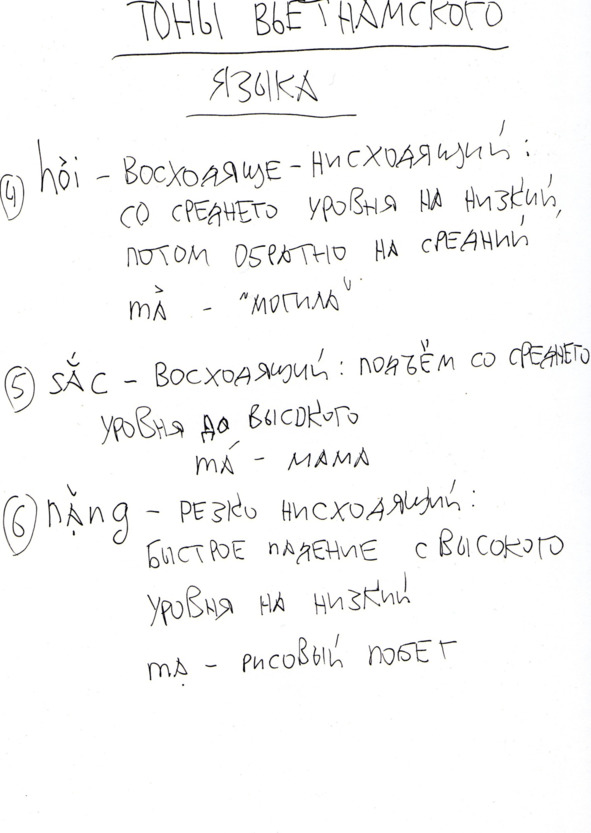 ТОНЫ ВЬЕТНАМСКОГО
ЯЗЫКА
④ hỏi – ВОСХОДЯЩЕ – НИСХОДЯЩИЙ:
СО СРЕДНЕГО УРОВНЯ НА НИЗКИЙ,
ПОТОМ ОБРАТНО НА СРЕДНИЙ
mả – "МОГИЛА"
⑤ SẮC – ВОСХОДЯЩИЙ: ПОДЪЁМ СО СРЕДНЕГО
УРОВНЯ ДО ВЫСОКОГО
má – МАМА
⑥ nặng – РЕЗКО НИСХОДЯЩИЙ:
БЫСТРОЕ ПАДЕНИЕ С ВЫСОКОГО
УРОВНЯ НА НИЗКИЙ
mạ – РИСОВЫЙ ПОБЕГ